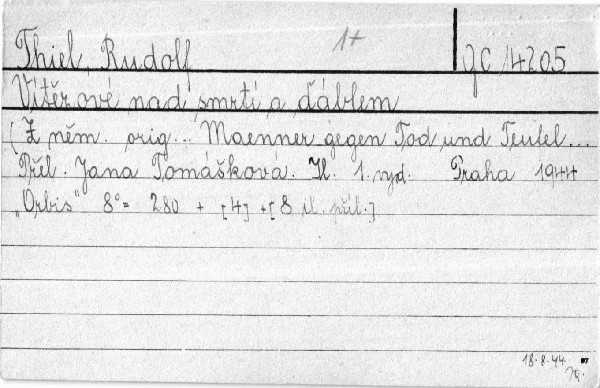 1+
Thiel, Rudolf
QC 14205
Vítězové nad smrtí a ďáblem
(Z něm. orig... Maenner gegen Tod und Teufel...
Přel. Jana Tomášková. Il. 1. vyd. Praha 1944
„Orbis" 8°= 280 + [4] + [8 il. příl.]
18.8.44